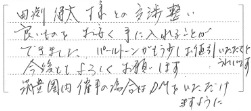 様との交渉整い
良いものをお安く手に入れることが
できました。パールトーンがもう少しお値引いただくと
うれしいです
今後ともよろしくお願いします
の場合はDMをいただけ
ますように